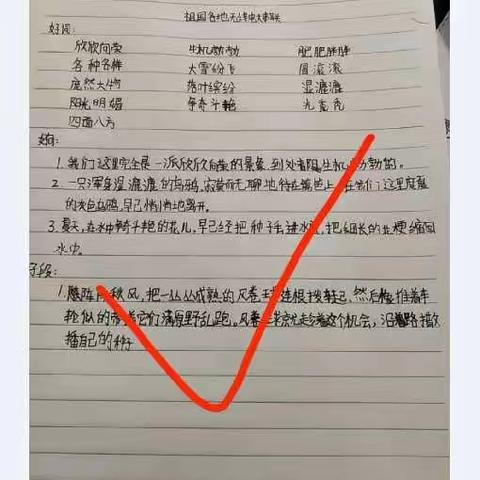 祖国各地无
好词:
欣欣向荣 生机勃勃 肥肥胖胖
各种各样 大雪纷飞 圆滚滚
庞然大物 落叶缤纷 湿漉漉
阳光明媚 争奇斗艳 光秃秃
四面八方
1. 我们这里完全是一派欣欣向荣的景象,到处都 生机勃勃的。
2. 一只浑身湿漉漉的乌鸦,寂寞而无聊地待在 上,在它们这里度夏
的灰色乌鸦,早已悄悄地离开。
3. 夏天,在水中争奇斗艳的花儿,早已经把种子 进水底,把细长的 梗缩回
水中。
段:
1. 阵阵 秋风,把一丛丛成熟的风卷 连根拔起,然后 推着车
轮似的 着它们满田野乱跑。风卷 就趁着这个机会,沿路撒
播自己的种子